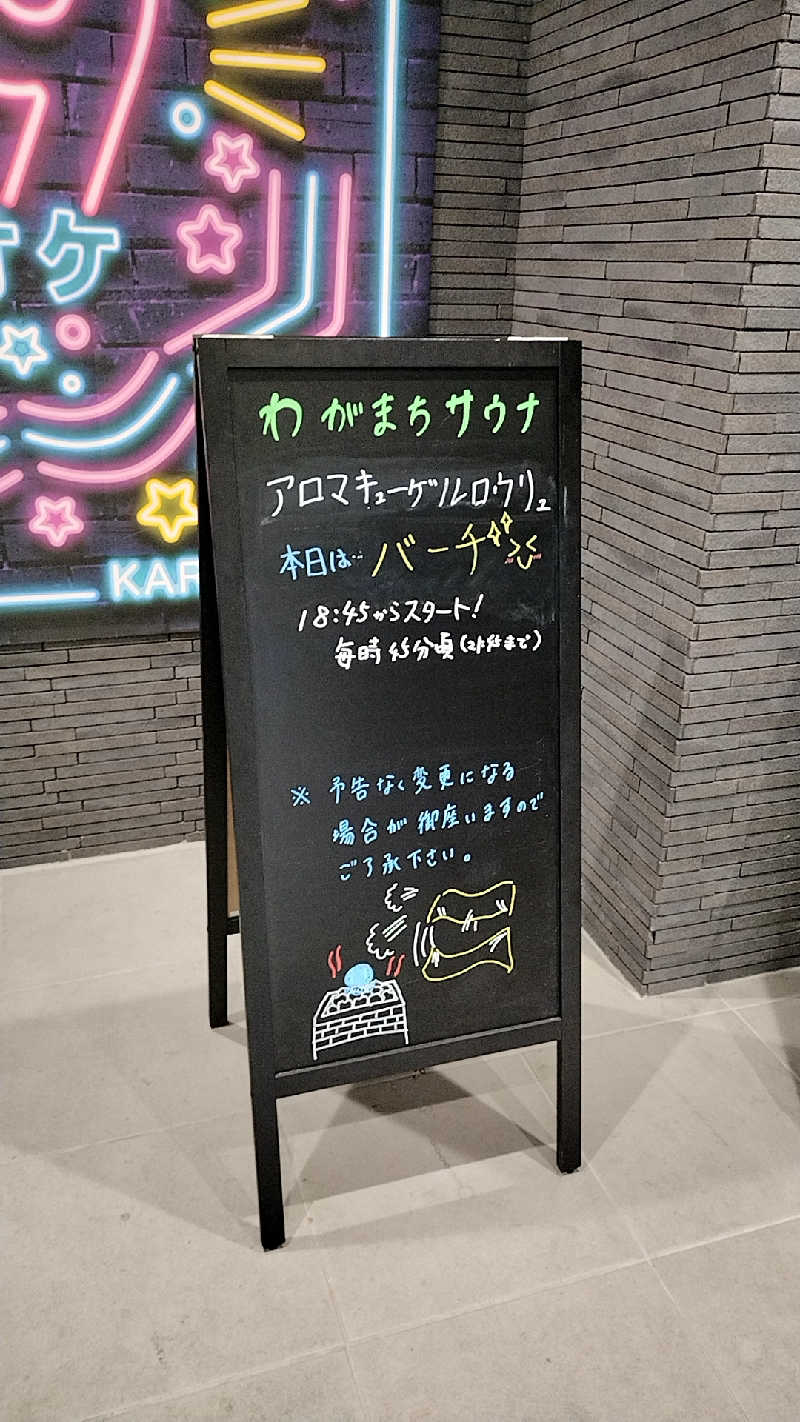 ケ
KAR
わがまちサウナ
アロマキューゲルロウリュ
本日は…バーチ
18:45からスタート!
毎時45分頃(21:45まで)
※予告なく変更になる
場合が御座いますので
ご了承下さい。